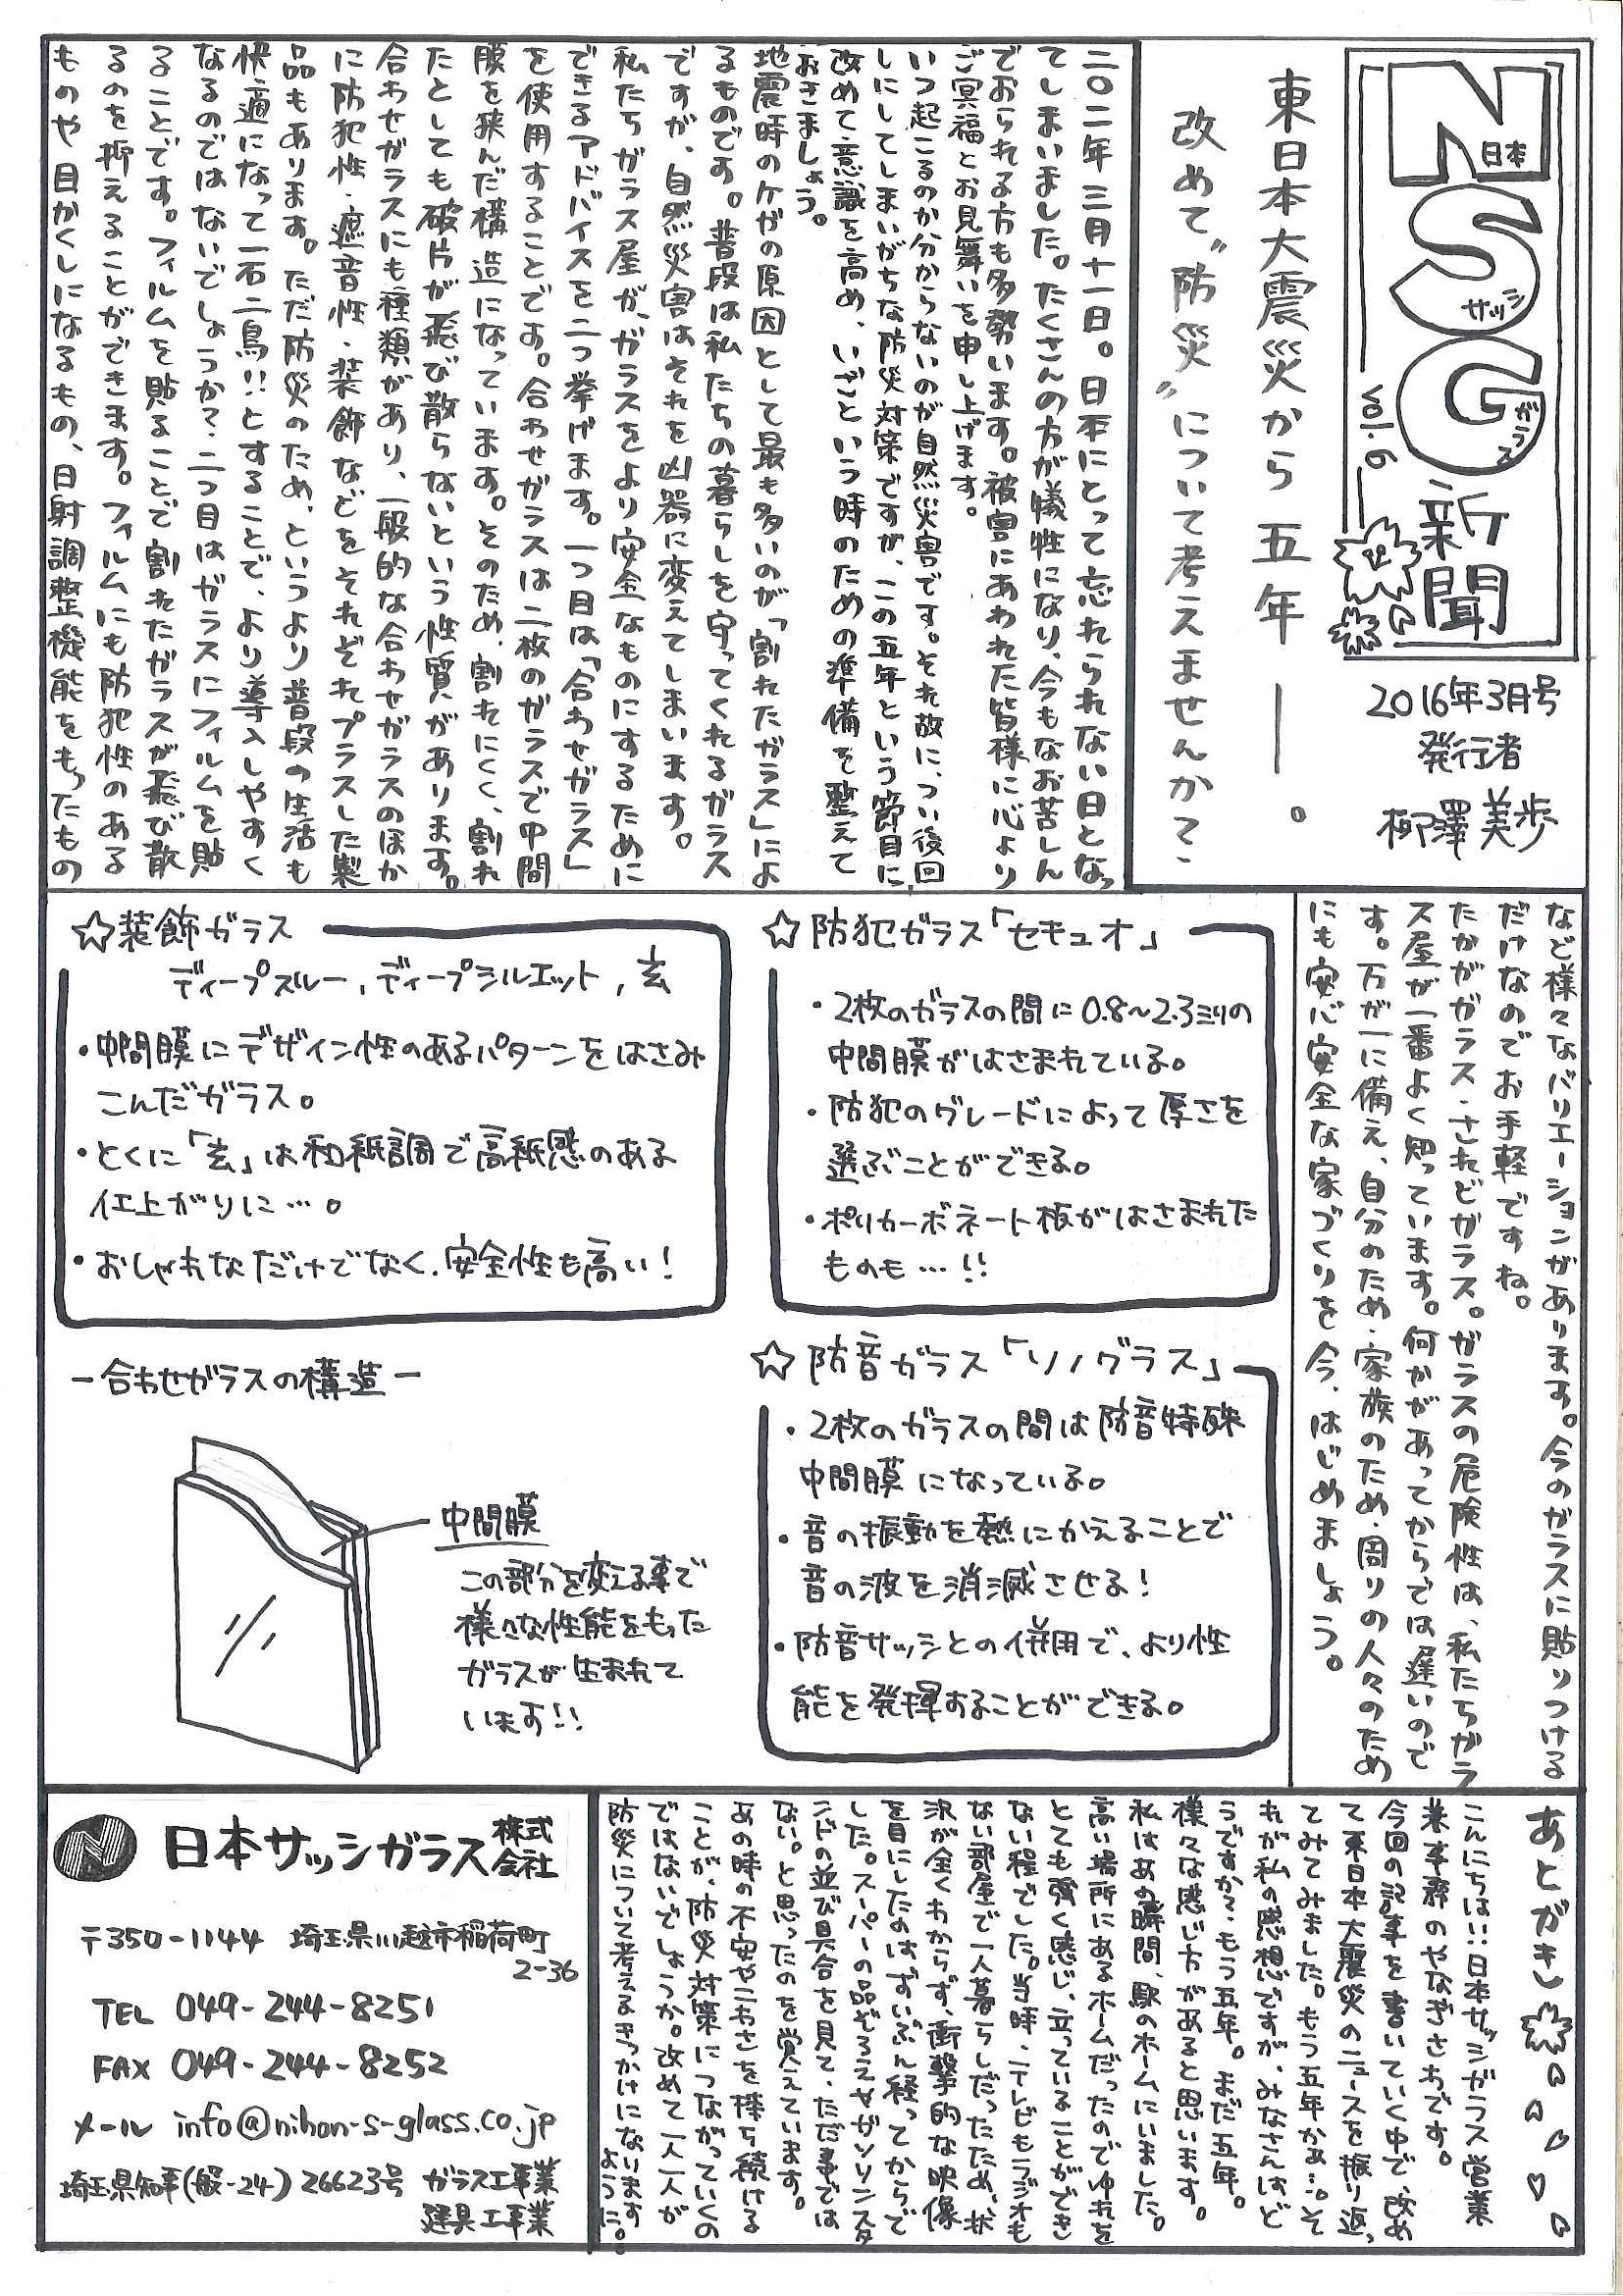 NSG新聞
日本
サッシ
ガラス
vol.6
2016年3月号
発行者
柳澤美歩
東日本大震災から 五年――。
改めて〝防災〟について考えませんか?.
二〇一一年三月十一日。日本にとって忘れられない日となっ
てしまいました。たくさんの方が犠牲になり、今もなお苦しん
でおられる方も多勢います。被害にあわれた皆様に心より
ご冥福とお見舞いを申し上げます。
いつ起こるのか分からないのが自然災害です。それ故に、つい後回
しにしてしまいがちな防災対策ですが、この五年という節目に、
改めて意識を高め、いざという時のための準備を整えて
おきましょう。
地震時のケガの原因として最も多いのが「割れたガラス」によ
るものです。普段は私たちの暮らしを守ってくれるガラス
ですが、自然災害はそれを凶器に変えてしまいます。
私たちガラス屋が、ガラスをより安全なものにするために
できるアドバイスを二つ挙げます。一つ目は「合わせガラス」
を使用することです。合わせガラスは二枚のガラスで中間
膜を狭んだ構造になっています。そのため、割れにくく、割れ
たとしても破片が飛び散らないという性質があります。
合わせガラスにも種類があり、一般的な合わせガラスのほか
に防犯性・遮音性・装飾などをそれぞれプラスした製
品もあります。ただ防災のため、というより普段の生活も
快適になって一石二鳥!!とすることで、より導入しやすく
なるのではないでしょうか?.二つ目はガラスにフィルムを貼
ることです。フィルムを貼ることで割れたガラスが飛び散
るのを抑えることができます。フィルムにも防犯性のある
ものや目かくしになるもの、日射調整機能をもったもの
など様々なバリエーションがあります。今のガラスに貼りつける
だけなのでお手軽ですね。
たかがガラス・されどガラス。ガラスの危険性は、私たちガラ
ス屋が一番よく知っています。何かがあってからでは遅いので
す。万が一に備え、自分のため・家族のため・周りの人々のため
にも安心安全な家づくりを今、はじめましょう。
☆防犯ガラス「セキュオ」
・2枚のガラスの間に0.8～2.3ミリの
中間膜がはさまれている。
・防犯のグレードによって厚さを
選ぶことができる。
・ポリカーボネート板がはさまれた
ものも…!!
☆装飾ガラス
ディープスルー,ディープシルエット,玄
・中間膜にデザイン性のあるパターンをはさみ
こんだガラス。
・とくに「玄」は和紙調で高紙感のある
仕上がりに…。
・おしゃれなだけでなく、安全性も高い!
☆防音ガラス「ソノグラス」
・2枚のガラスの間は防音特殊
中間膜になっている。
・音の振動を熱にかえることで
音の波を消滅させる!
・防音サッシとの併用で、より性
能を発揮することができる。
－合わせガラスの構造－
中間膜
この部分を変える事で
様々な性能をもった
ガラスが生まれて
います!!
あとがき
こんにちは!!日本サッシガラス営業
業事務のやなぎさわです。
今回の記事を書いていく中で、改め
て東日本大震災のニュースを振り返っ
てみてみました。もう五年かぁ…。そ
れが私の感想ですが、みなさんはど
うですか?.もう五年。まだ五年。
様々な感じ方があると思います。
私はあの瞬間、駅のホームにいました。
高い場所にあるホームだったのでゆれを
とても強く感じ、立っていることができ
ない程でした。当時、テレビもラジオも
ない部屋で一人暮らしだったため、状
況が全くわからず、衝撃的な映像
を目にしたのは、ずいぶん経ってからで
した。スーパーの品ぞろえやガソリンスタ
ンドの並び具合を見て、ただ事では
ない。と思ったのを覚えています。
あの時の不安やこわさを持ち続ける
ことが、防災対策につながっていくの
ではないでしょうか。改めて一人一人が
防災について考えるきっかけになります
ように。
日本サッシガラス株式会社
〒350-1144 埼玉県川越市稲荷町
2-36
TEL 049-244-8251
FAX 049-244-8252
メール info@nihon-s-glass.co.jp
埼玉県知事(般-24)26623号 ガラス工事業
建具工事業